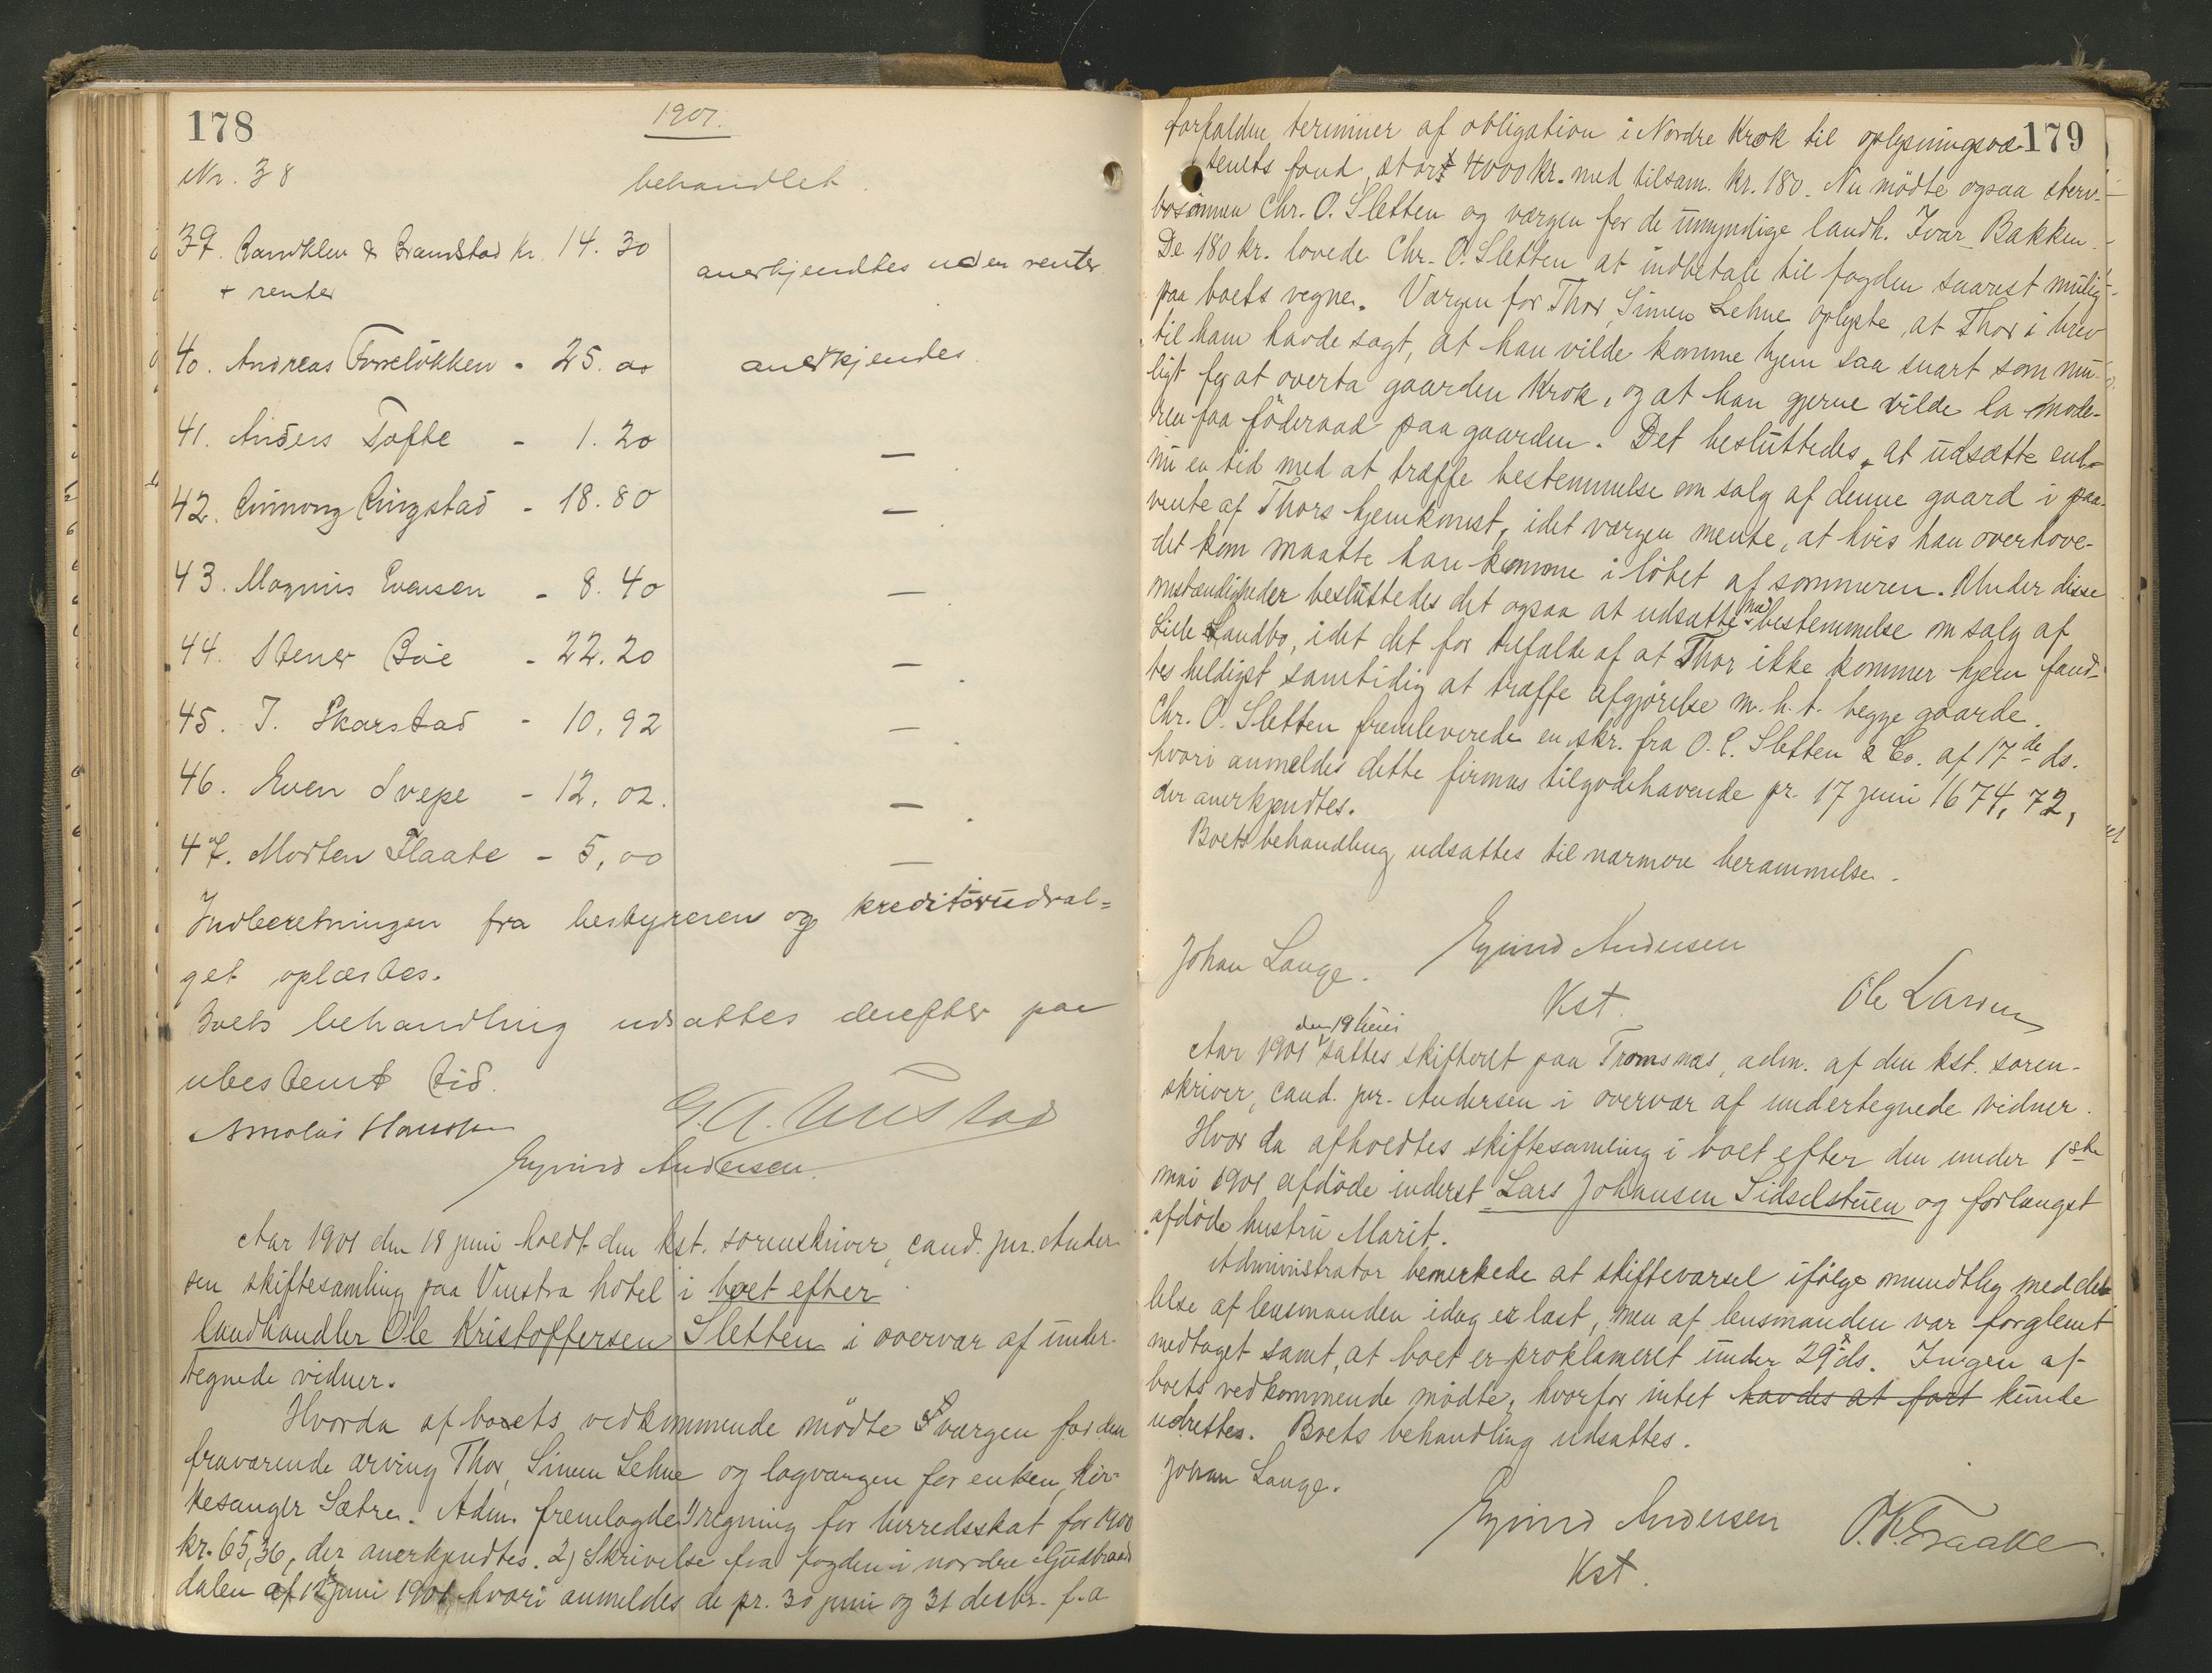 178
1901.
Nr. 38 behandlet.
39. Randklev & Bramstad kr. 14.30 anerkjendtes uden renter.
+ renter
40. Andreas Forreløkken - 25.00 anerkjendes.
41. Anders Tofte - 1.20 —
42. Ringstad - 18.80 —
43. Magnus Evensen - 8.40 —
44. Stener Bøe - 22.20 —
45. J. Skarstad - 10,92 —
46. Even Svepe - 12,02. —
47. Morten Flaate - 5,00 —
Indberetningen fra bestyreren og kreditorudval=
get oplæstes.
Boets behandling udsattes derefter paa
ubestemt tid.
Eyvind Andersen.
Aar 1901 den 18 juni holdt den kst. sorenskriver, cand. jur. Ander-
sen skiftesamling paa Vinstra hotel i boet efter
landhandler Ole Kristoffersen Sletten i overvær af under-
tegnede vidner.
Hvorda af boets vedkommende mødte værgen for den
fraværende arving Thor, Simen Lehne og lagværgen for enken, kir-
kesanger Sætre. Adm. fremlagde 1) regning for herredsskat for 1900
kr. 65,36, der anerkjendtes. 2) Skrivelse fra fogden i nordre Gudbrands
dalen af 12te juni 1901 hvori anmeldes de pr. 30 juni og 31 decbr. f.a.
179
forfaldne terminer af obligation i Nordre Krok til oplysningsvæ-
senets fond, stort 4000 kr. med tilsam. kr. 180. Nu mødte ogsaa sterv-
bosønnen Chr. O. Sletten og værgen for de umyndige landh. Ivar Bakken.
De 180 kr. lovede Chr. O. Sletten at indbetale til fogden snarest mulig
paa boets vegne. Værgen for Thor, Simen Lehne oplyste, at Thor i brev
til ham havde sagt, at han vilde komme hjem saa snart som mu-
ligt for at overta gaarden Krok, og at han gjerne vilde la mode-
ren faa føderaad paa gaarden. Det besluttedes at udsætte end-
nu en tid med at træffe bestemmelse om salg af denne gaard i paa-
vente af Thors hjemkomst, idet værgen mente, at hvis han overhove-
det kom maatte han komme i løbet af sommeren. Under disse
omstændigheder besluttedes det ogsaa at udsætte med bestemmelse om salg af
Lille Landbo, idet det for tilfælde af at Thor ikke kommer hjem fand-
tes heldigst samtidig at træffe afgjørelse m.h.t. begge gaarde.
Chr. O. Sletten fremleverede en skr. fra O. C. Sletten & Co. af 17de ds.
hvori anmeldes dette firmas tilgodehavende pr. 17 juni 1674,72,
der anerkjendtes.
Boets behandling udsattes til nærmere berammelse.
Johan Lange. Eyvind Andersen
Kst. Ole Larsen
Aar 1901 den 19 juni sattes skifteret paa Tromsnæs, adm. af den kst. soren-
skriver, cand. jur. Andersen i overvær af undertegnede vidner.
Hvor da afholdtes skiftesamling i boet efter den under 1ste
mai 1901 afdøde inderst Lars Johansen Sidselstuen og forlængst
afdøde hustru Marit.
Administrator bemerkede at skiftevarsel ifølge mundtlig meddel-
lelse af lensmanden idag er læst, men af lensmanden var forglemt
medtaget samt, at boet er proklameret under 29 ds. Ingen af
boets vedkommende mødte, hvorfor intet havdes at fort kunde
udrettes. Boets behandling udsattes.
Johan Lange.
Eyvind Andersen
Kst.